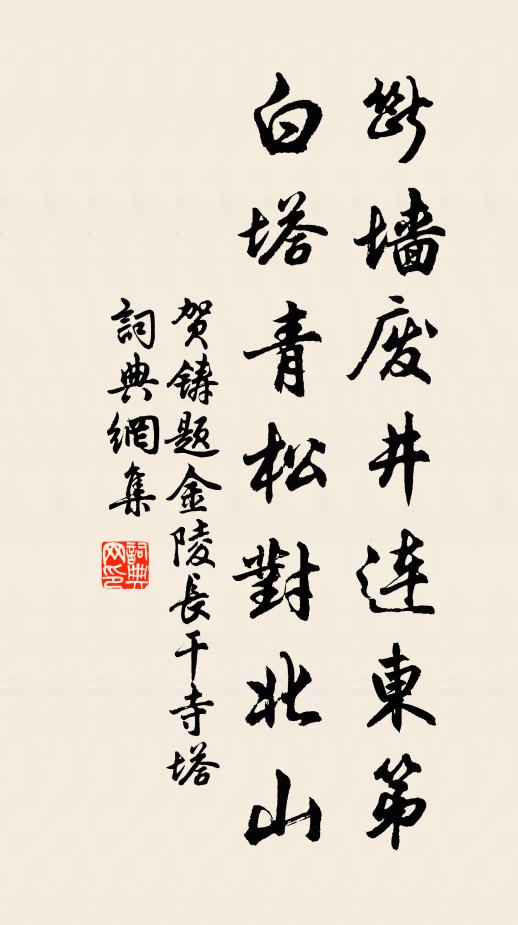 斷墙废井連東第
白塔青松對北山
贺鑄題金陵長干寺塔
詞典網集
詞典網印